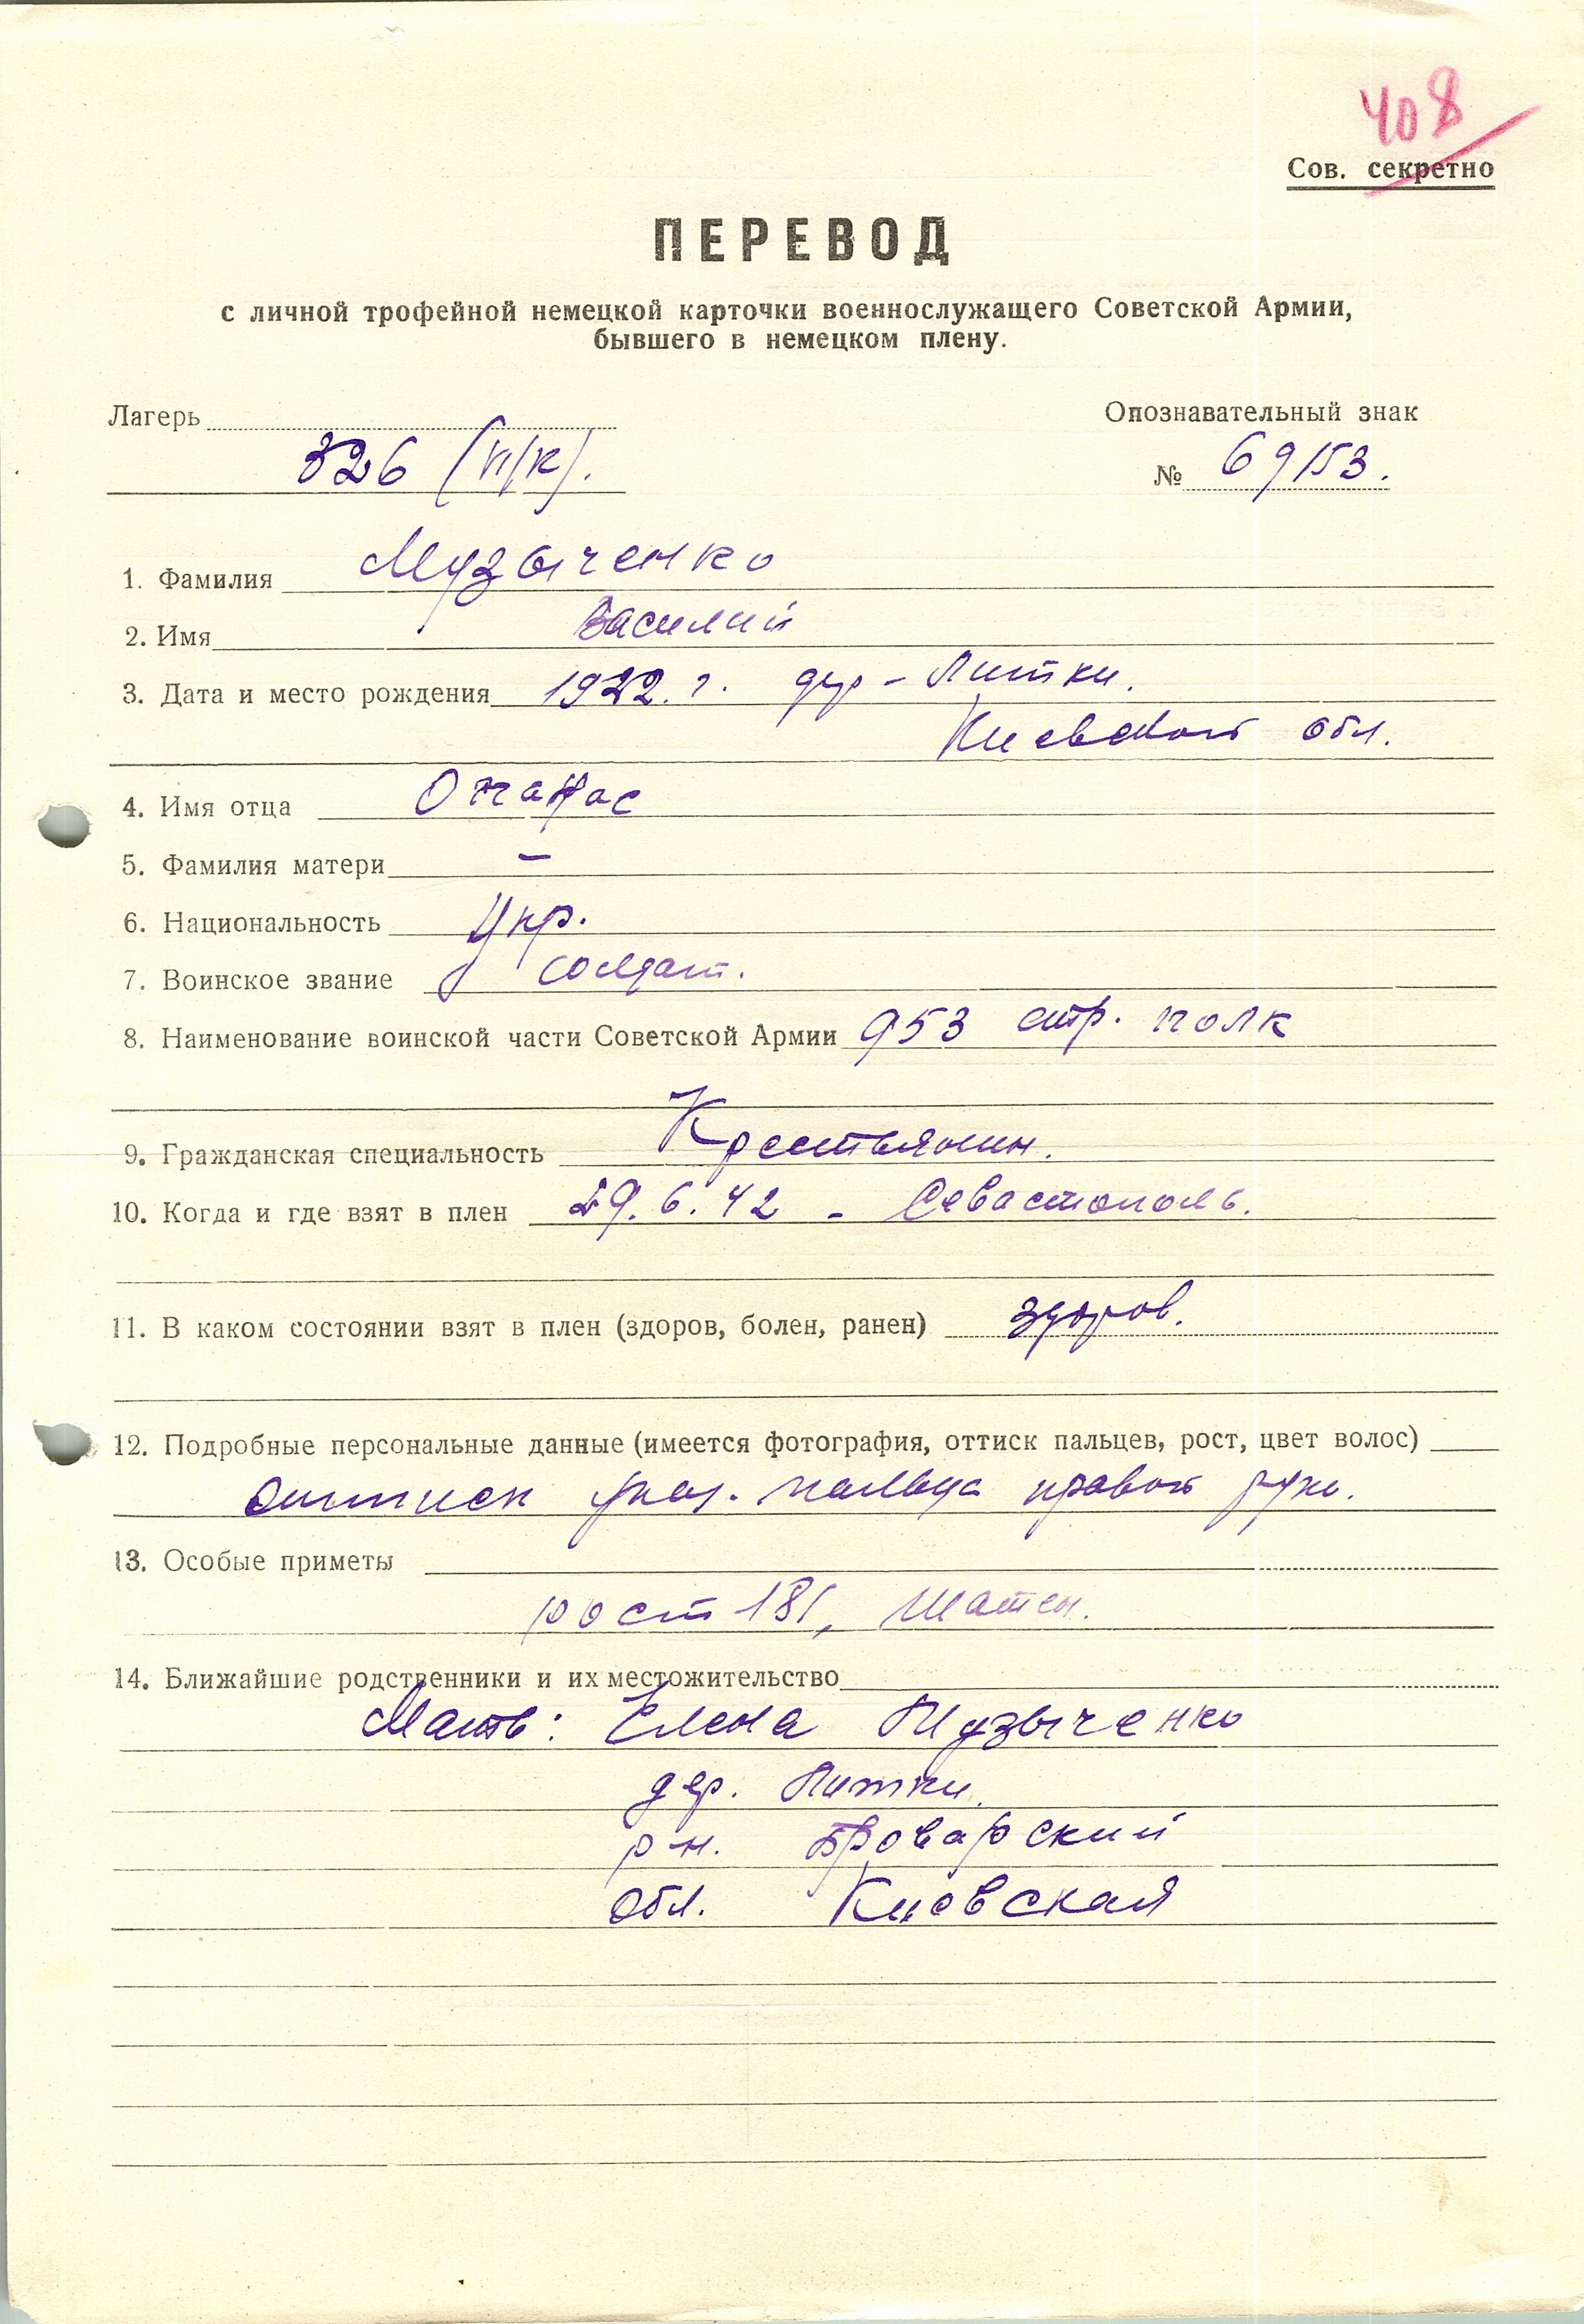 408
Сов. секретно
ПЕРЕВОД
с личной трофейной немецкой карточки военнослужащего Советской Армии,
бывшего в немецком плену.
Лагерь
Опознавательный знак
326 (VI/К).
№ 69153.
1. Фамилия Музыченко
2. Имя Василий
3. Дата и место рождения 1922. г. дер - Литки.
Киевской обл.
4. Имя отца
5. Фамилия матери –
6. Национальность Укр.
7. Воинское звание солдат.
8. Наименование воинской части Советской Армии 953 стр. полк
9. Гражданская специальность Крестьянин.
10. Когда и где взят в плен 29. 6. 42 - Севастополь.
11. В каком состоянии взят в плен (здоров, болен, ранен) здоров.
12. Подробные персональные данные (имеется фотография, оттиск пальцев, рост, цвет волос)
Оттиск указ. пальца правой руки.
13. Особые приметы
рост 181, шатен.
14. Ближайшие родственники и их местожительство
Мать: Елена Музыченко
дер. Литки.
р-н. Броварский
обл. Киевская